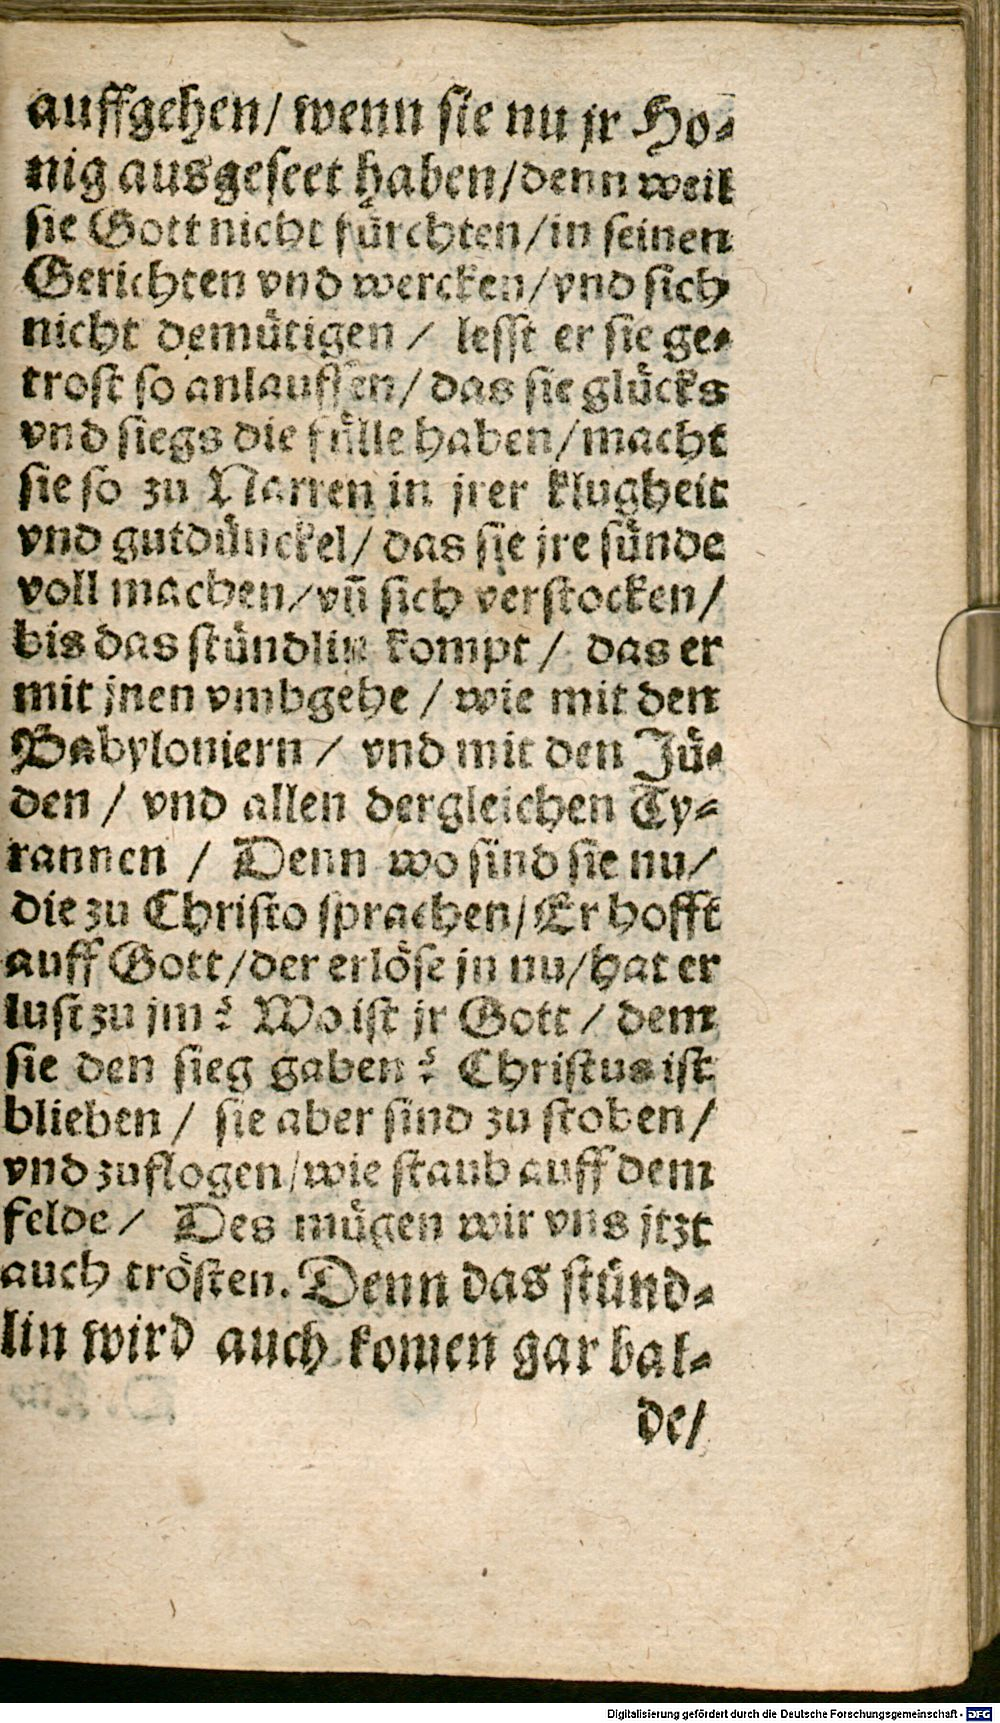 auffgehen/ wenn sie nu jr Ho-
nig ausgeseet haben/denn weil
sie Gott nicht fürchten/in seinen
Gerichten vnd wercken/vnd sich
nicht demütigen / lesst er sie ge-
trost so anlauffen/ das sie glücks
vnd siegs die fülle haben/macht
sie so zu Narren in jrer klugheit
vnd gutdünckel/ das sie jre sünde
voll machen/vñ sich verstocken/
bis das stündlin kompt / das er
mit jnen vmbgehe / wie mit den
Babyloniern / vnd mit den Jü-
den / vnd allen dergleichen Ty-
rannen / Denn wo sind sie nu/
die zu Christo sprachen/Er hofft
auff Gott/der erlöse jn nu/hat er
lust zu jm? Wo ist jr Gott / dem
sie den sieg gaben? Christus ist
blieben / sie aber sind zu stoben/
vnd zuflogen/wie staub auff dem
felde/ Des mügen wir vns jtzt
auch trösten. Denn das stünd-
lin wird auch komen gar bal-
de/
Digitalisierung gefördert durch die Deutsche Forschungsgemeinschaft - DFG